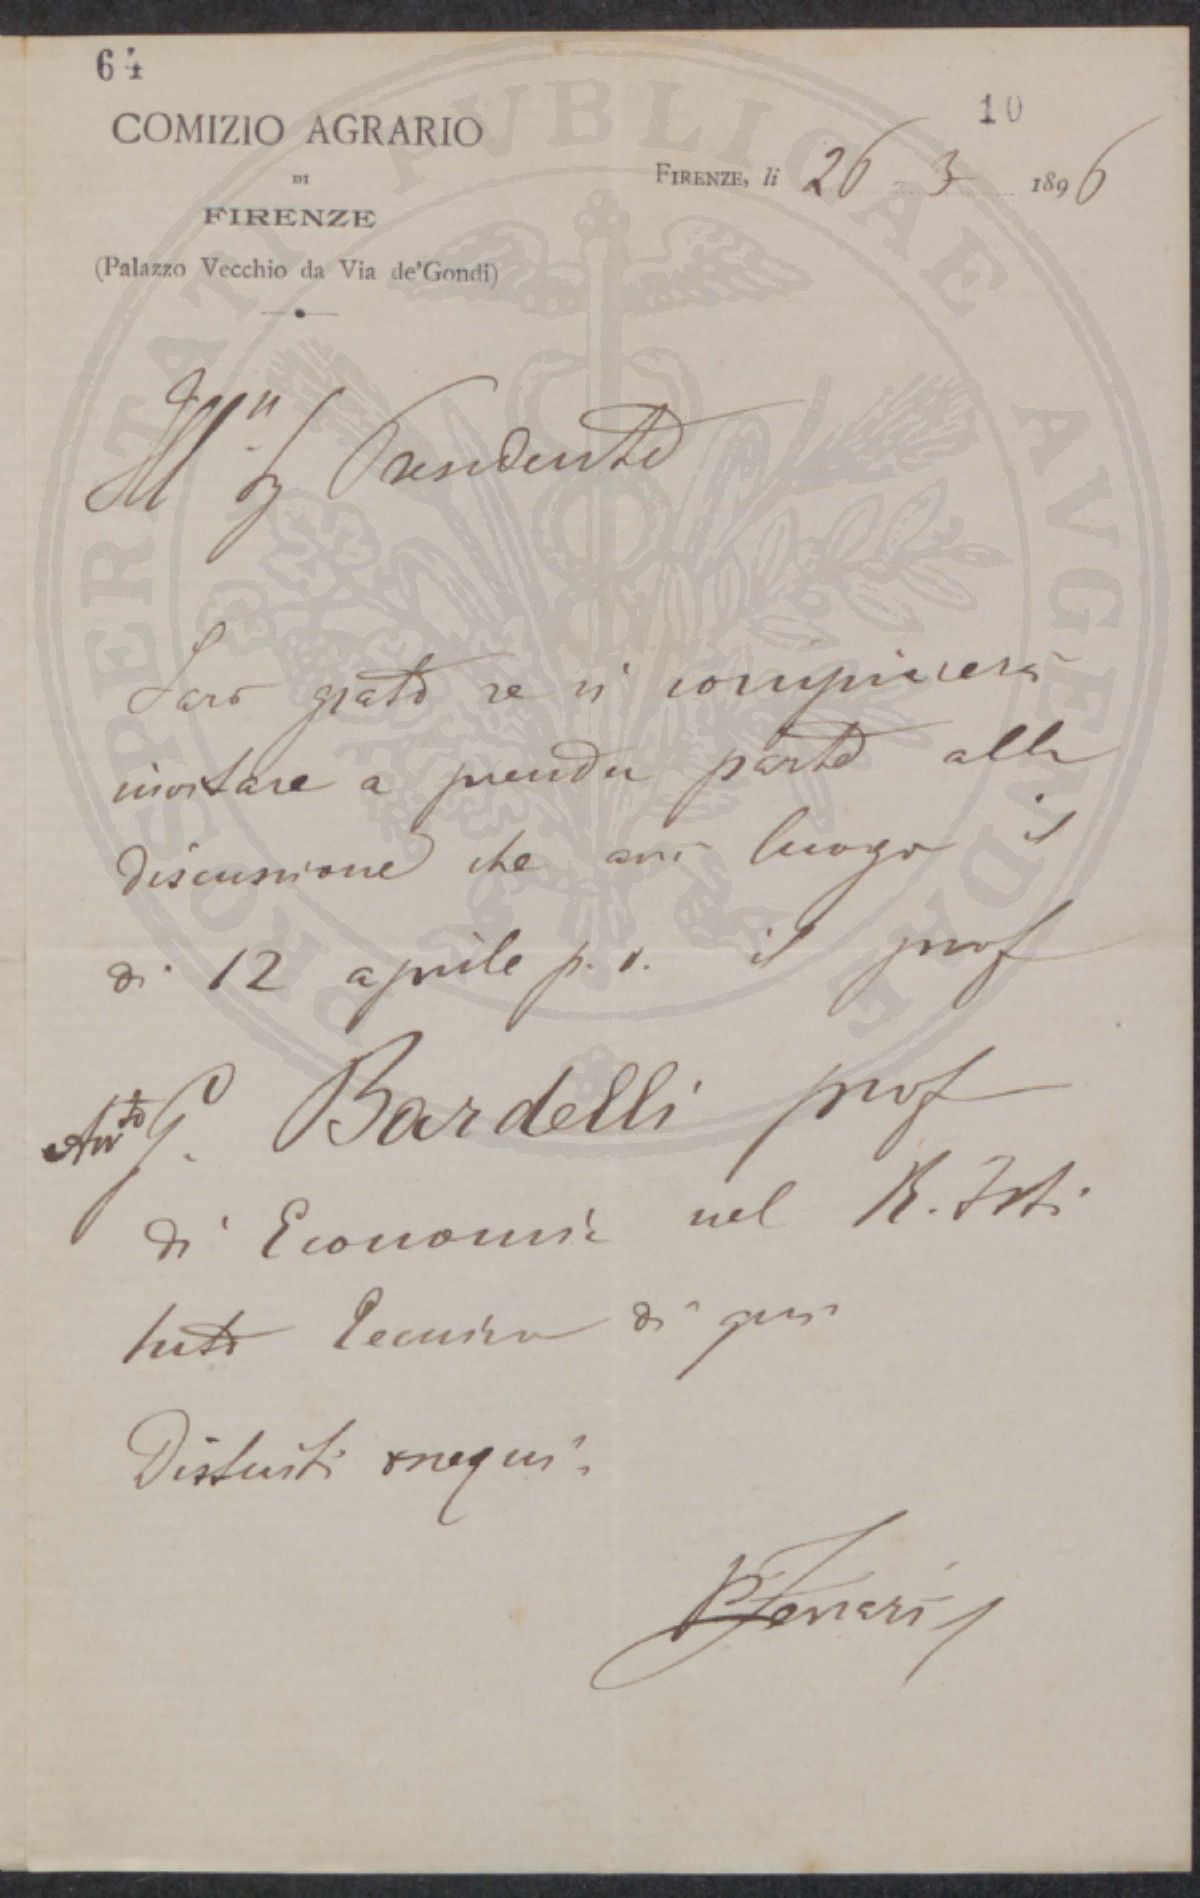 64
10
COMIZIO AGRARIO
DI
FIRENZE
(Palazzo Vecchio da Via de'Gondi)
FIRENZE, li 26 3 1896
Ill Sg Presidente
Sarò grato se si compiacerà
invitare a prender parte alla
discussione che avrà luogo il
dì 12 aprile p. v. il prof
G. Bardelli prof
di Economia nel R. Isti
tuto Tecnico di qui
Distinti ossequi.
Ferrari
PROSPERITATI PVBLICAE AVGENDAE